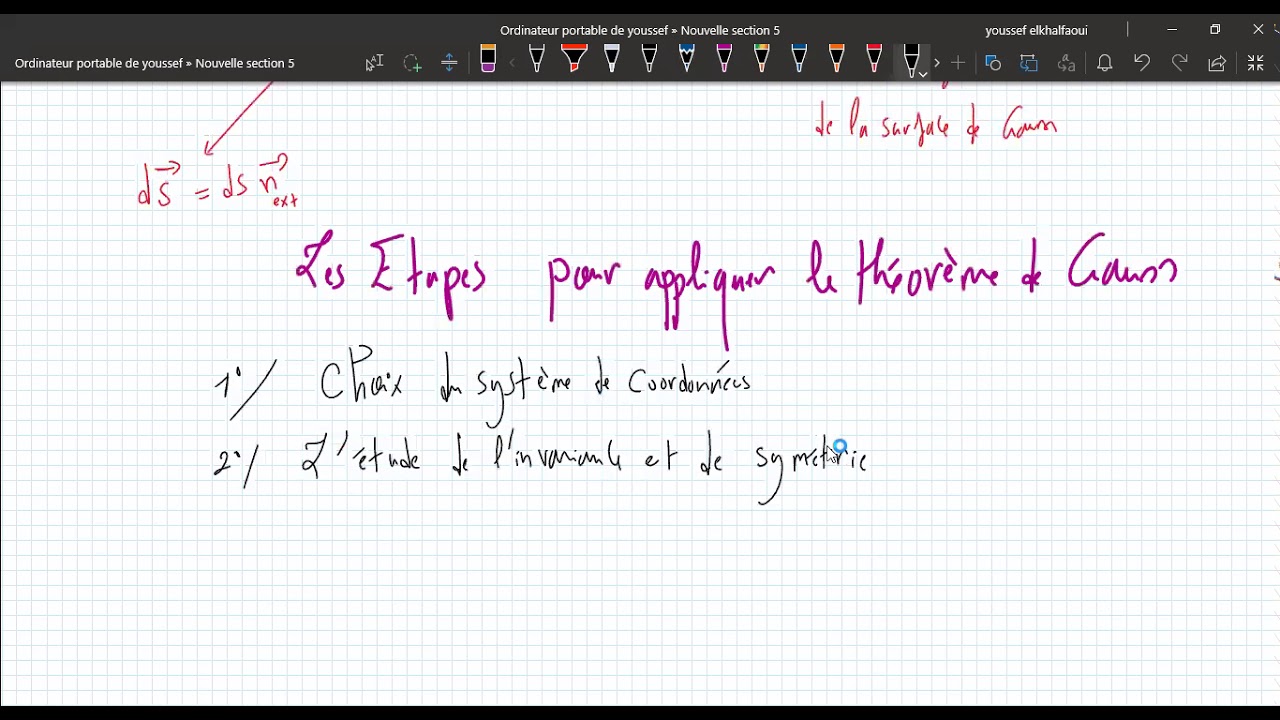 Ordinateur portable de youssef » Nouvelle section 5
youssef elkhalfaoui
Ordinateur portable de youssef » Nouvelle section 5
de la surface de Gauss
dS = dS n ext
Les Etapes pour appliquer le théorème de Gauss
1°/ Choix du système de Coordonnées
2°/ L'étude de l'invariance et de symétrie